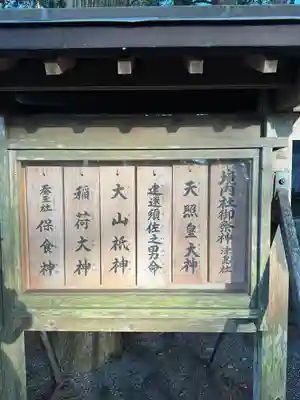 境内社御祭神
天照皇大神
建速須佐之男命
大山祇神
稲荷大神
蚕玉社 保食神